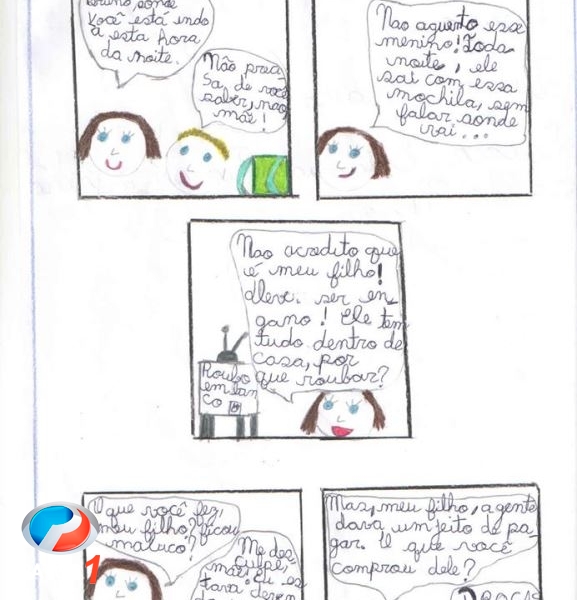 Bruno, aonde
você está indo
a esta hora
da noite.
Não preci
sa, de você
saber, não,
mãe!
Nao aguento esse
menino! Toda
noite, ele
sai com essa
mochila, sem
falar aonde
vai...
Nao acredito que
é meu filho!
Deve. ser en-
gano! Ele tem
tudo dentro de
casa, por
que roubar?
Roubo
em ban
co
O que você fez,
meu filho? Ficou
maluco?
Me des
culpe,
mãe! Eu es
tava deven
Mas, meu filho, a gente
dava um jeito de pa-
gar. O que você
comprou dele?
DROGAS
1